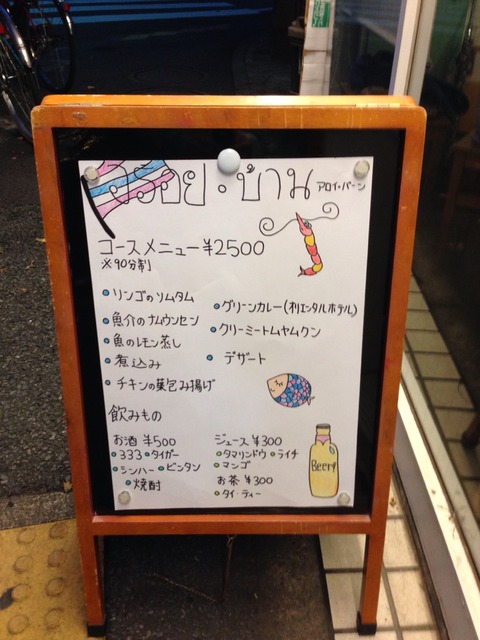 อร่อย・บ้าน アロイ・バーン
コースメニュー ¥2500
※90分制
リンゴのソムタム
魚介のナムウンセン
魚のレモン蒸し
煮込み
チキンの葉包み揚げ
グリーンカレー(オリエンタルホテル)
クリーミートムヤムクン
デザート
飲みもの
お酒 ¥500
333 タイガー
シンハー ビンタン
焼酎
ジュース ¥300
タマリンドウ ライチ
マンゴ
お茶 ¥300
タイ・ティー
Beer